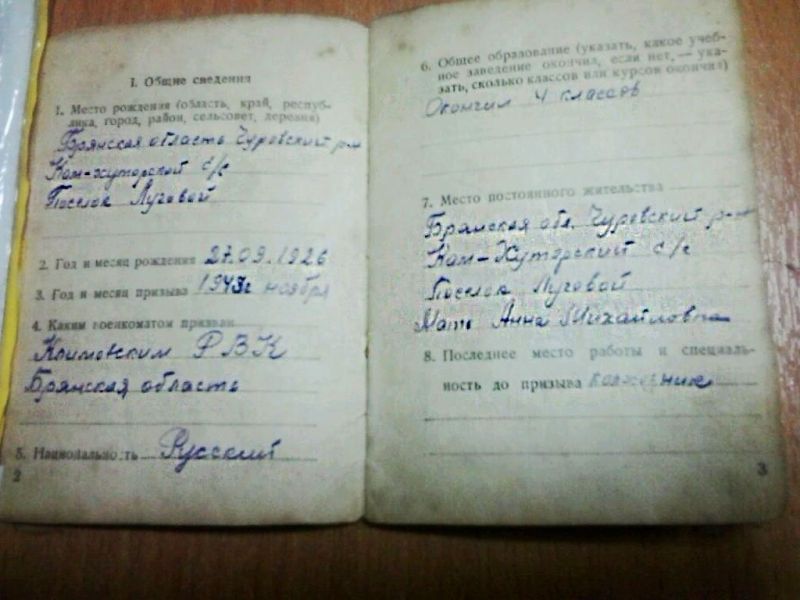 I. Общие сведения
1. Место рождения (область, край, респуб-
лика, город, район, сельсовет, деревня)
Брянская область Чуровский р-н
Кам-хуторской с/с
Поселок Луговой
2. Год и месяц рождения 27.09.1926
3. Год и месяц призыва 1943г ноября
4. Каким военкоматом призван
Климовским РВК
Брянская область
5. Национальность Русский
2
6. Общее образование (указать, какое учеб-
ное заведение окончил, если нет, — ука-
зать, сколько классов или курсов окончил)
Окончил 4 классов
7. Место постоянного жительства
Брянская обл. Чуровский р-н
Кам-Хуторский с/с
Поселок Луговой
Мать Анна Михайловна
8. Последнее место работы и специаль-
ность до призыва колхозник
3